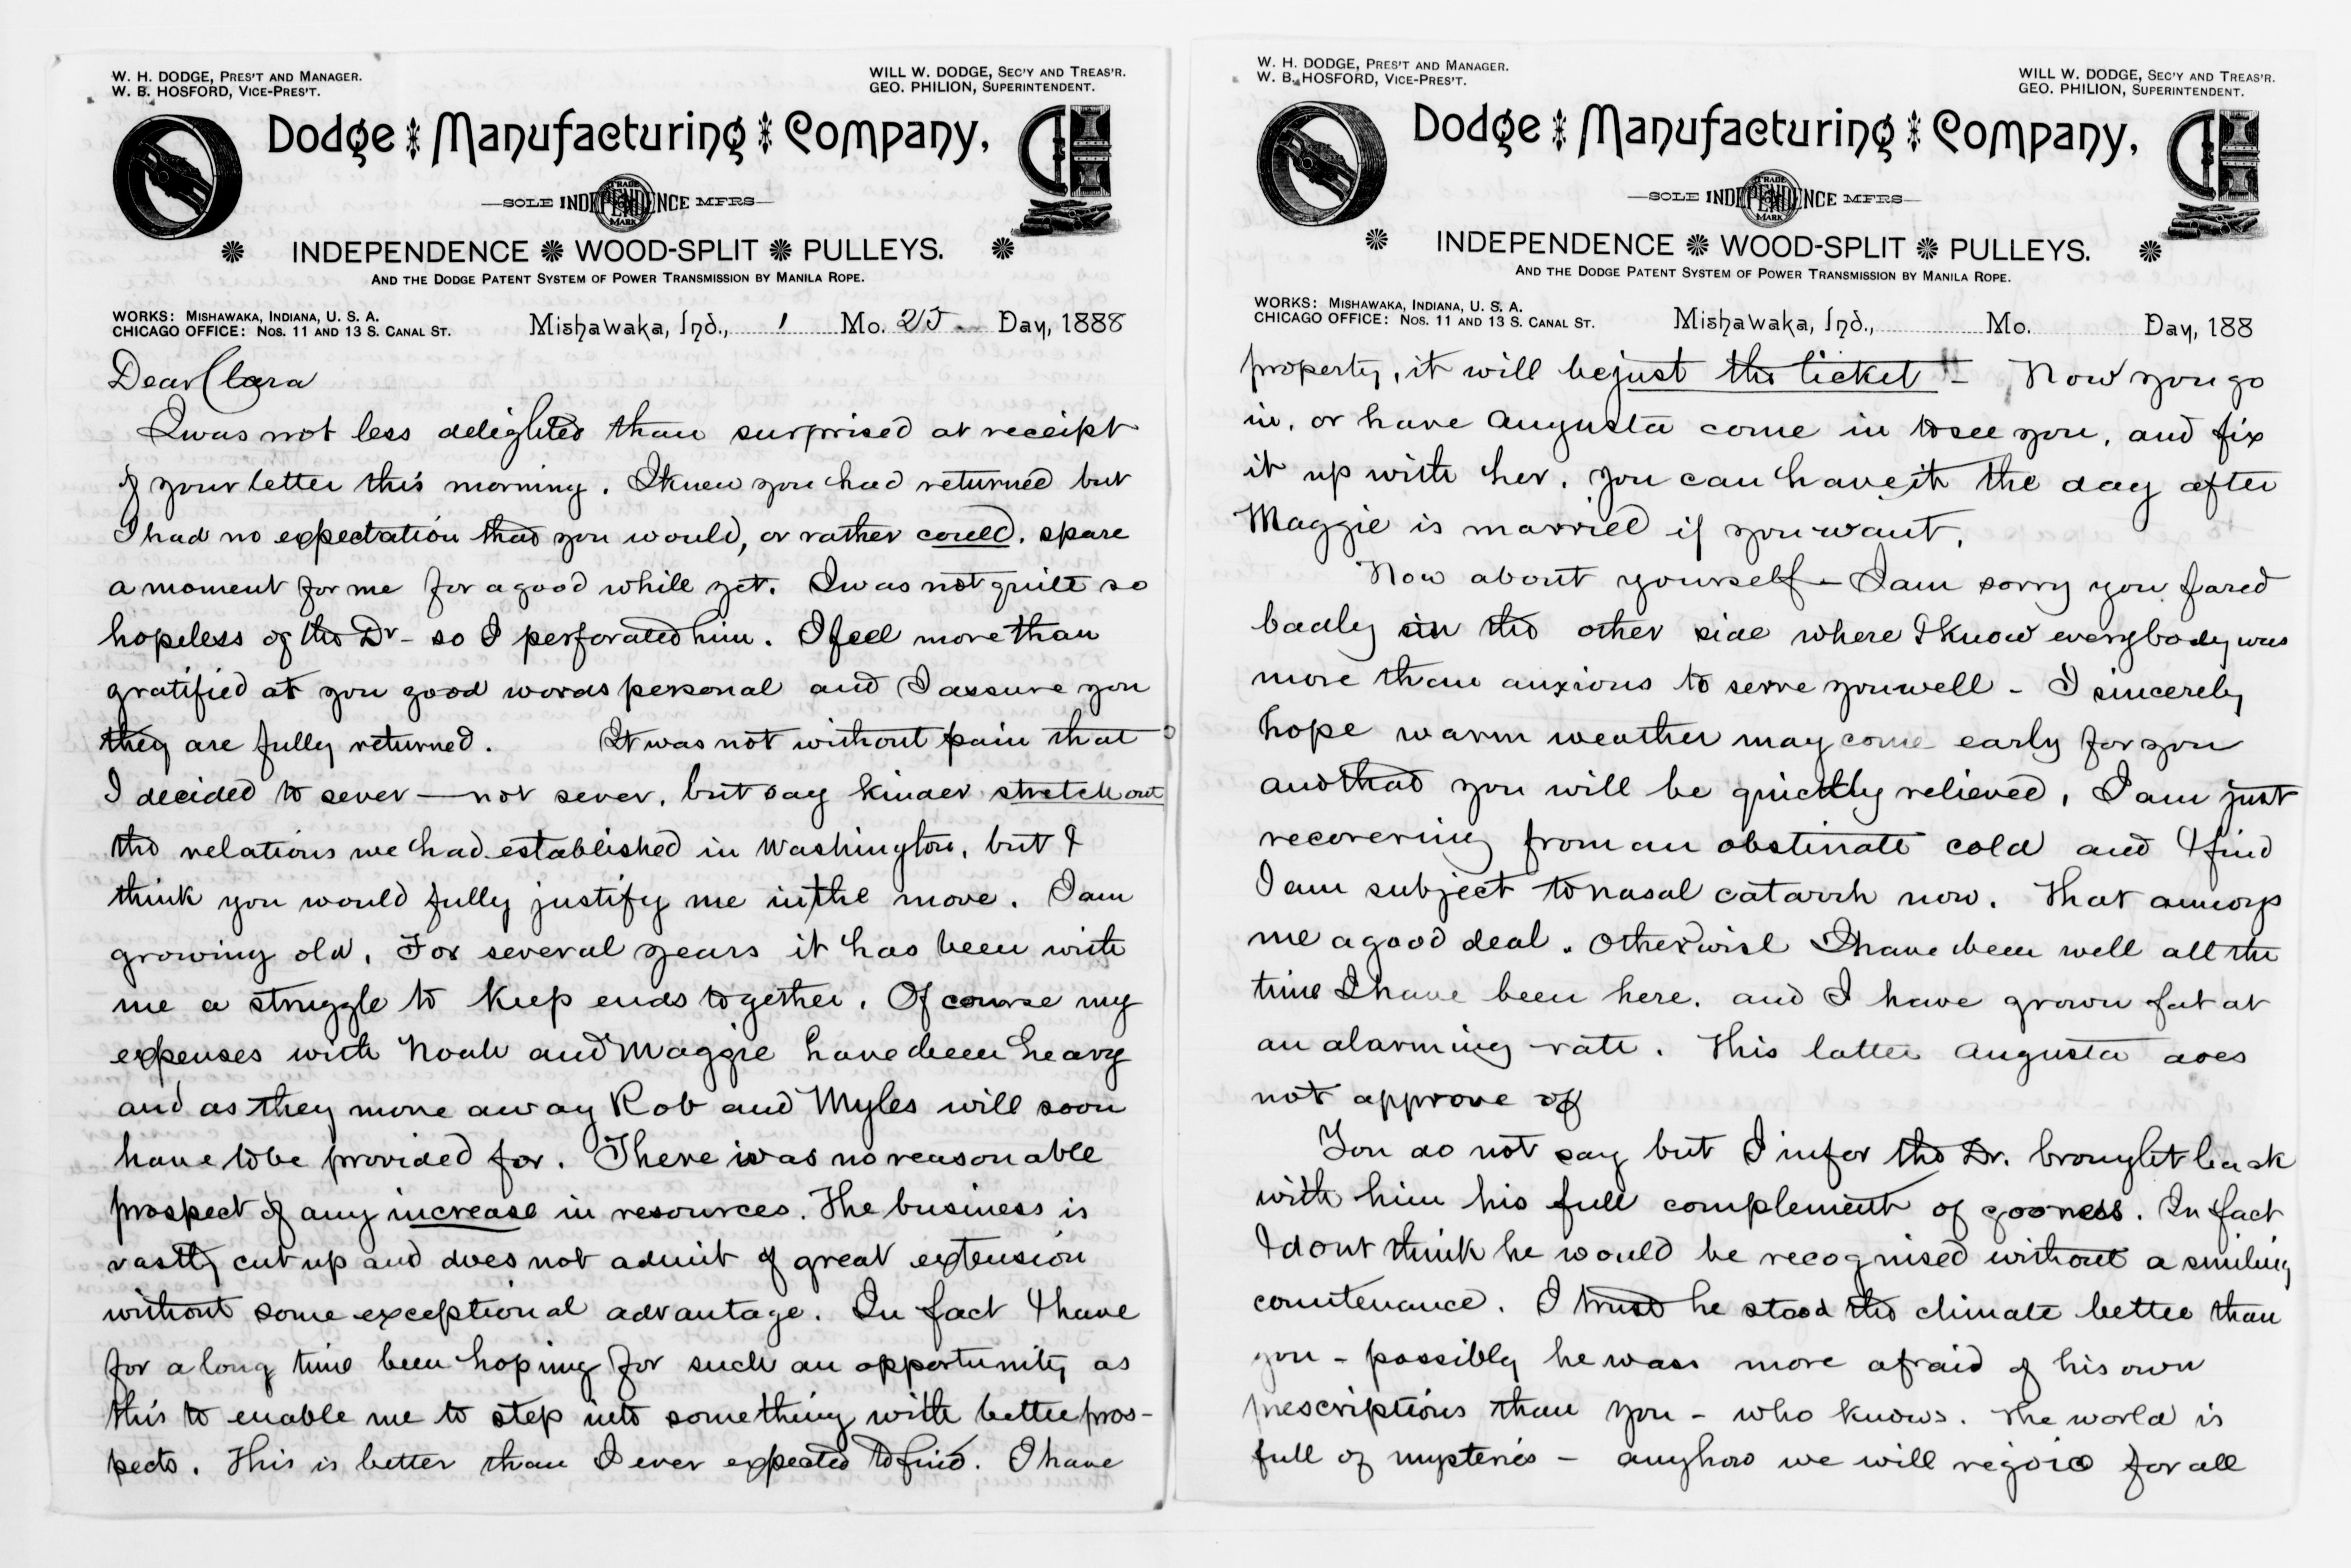 W. H. DODGE, PRES'T AND MANAGER.
W. B. HOSFORD, VICE-PRES'T.
WILL W. DODGE, SEC'Y AND TREAS'R.
GEO. PHILION, SUPERINTENDENT.
Dodge Manufacturing Company,
SOLE INDEPENDENCE MFRS
TRADE
MARK
INDEPENDENCE WOOD-SPLIT PULLEYS.
AND THE DODGE PATENT SYSTEM OF POWER TRANSMISSION BY MANILA ROPE.
WORKS: MISHAWAKA, INDIANA, U. S. A.
CHICAGO OFFICE: NOS. 11 AND 13 S. CANAL ST.
Mishawaka, Ind., 1 Mo. 25 Day, 1888
Dear Clara
I was not less delighted than surprised at receipt
of your letter this morning. I knew you had returned but
I had no expectation that you would, or rather could, spare
a moment for me for a good while yet. I was not quite so
hopeless of the Dr - so I perforated him. I feel more than
gratified at you good words personal and I assure you
they are fully returned. It was not without pain that
I decided to sever — not sever, but say kinder stretch out
the relations we had established in Washington, but I
think you would fully justify me in the move. I am
growing old. For several years it has been with
me a struggle to keep ends together. Of course my
expenses with Noah and Maggie have been heavy
and as they move away Rob and Myles will soon
have to be provided for. There was no reasonable
prospect of any increase in resources. The business is
vastly cut up and does not admit of great extension
without some exceptional advantage. In fact I have
for a long time been hoping for such an opportunity as
this to enable me to step into something with better pros-
pects. This is better than I ever expected to find. I have
W. H. DODGE, PRES'T AND MANAGER.
W. B. HOSFORD, VICE-PRES'T.
WILL W. DODGE, SEC'Y AND TREAS'R.
GEO. PHILION, SUPERINTENDENT.
Dodge Manufacturing Company,
SOLE INDEPENDENCE MFRS
TRADE
MARK
INDEPENDENCE WOOD-SPLIT PULLEYS.
AND THE DODGE PATENT SYSTEM OF POWER TRANSMISSION BY MANILA ROPE.
WORKS: MISHAWAKA, INDIANA, U. S. A.
CHICAGO OFFICE: NOS. 11 AND 13 S. CANAL ST.
Mishawaka, Ind., Mo. Day, 188
property, it will be just the ticket !! - Now you go
in, or have Augusta come in to see you, and fix
it up with her. You can have it the day after
Maggie is married if you want.
Now about yourself - I am sorry you fared
badly in the other side where I know everybody was
more than anxious to serve you well - I sincerely
hope warm weather may come early for you
and that you will be quickly relieved. I am just
recovering from an obstinate cold and I find
I am subject to nasal catarrh now. That annoys
me a good deal. Otherwise I have been well all the
time I have been here, and I have grown fat at
an alarming rate. This latter Augusta does
not approve of
You do not say but I infer the Dr. brought back
with him his full complement of gooness. In fact
I dont think he would be recognised without a smiling
countenance. I trust he stood the climate better than
you - possibly he was more afraid of his own
prescriptions than you - who knows. The world is
full of mysteries - anyhow we will rejoice for all